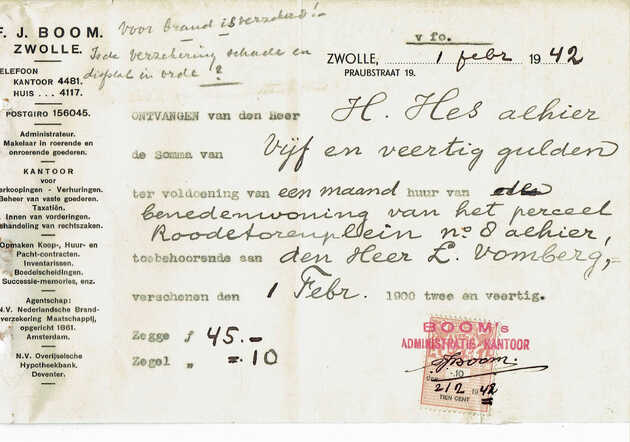 F. J. BOOM.
ZWOLLE.
TELEFOON
KANTOOR 4481.
HUIS ... 4117.
POSTGIRO 156045.
Administrateur.
Makelaar in roerende en
onroerende goederen.
KANTOOR
voor
Verkoopingen - Verhuringen.
Beheer van vaste goederen.
Taxatiën.
Innen van vorderingen.
Behandeling van rechtszaken.
Opmaken Koop-, Huur- en
Pacht-contracten.
Inventarissen.
Boedelscheidingen.
Successie-memories, enz.
Agentschap:
N.V. Nederlandsche Brand-
verzekering Maatschappij,
opgericht 1861.
Amsterdam.
N.V. Overijselsche
Hypotheekbank.
Deventer.
Voor brand is verzekerd!-
verzekering schade en
diefstal in orde?
v fo.
ZWOLLE, 1 febr 1942
PRAUBSTRAAT 19.
ONTVANGEN van den Heer H. Hes alhier
de Somma van Vijf en veertig gulden
ter voldoening van een maand huur van
benedenwoning van het perceel
Roodetorenplein no 8 alhier,
toebehoorende aan den Heer L. Vomberg,-
verschenen den 1 Febr. 1900 twee en veertig.
Zegge f 45.-
Zegel " =.10
BOOM's
ADMINISTRATIE-KANTOOR
FJBoom.
-.10
2/2 1942
TIEN CENT